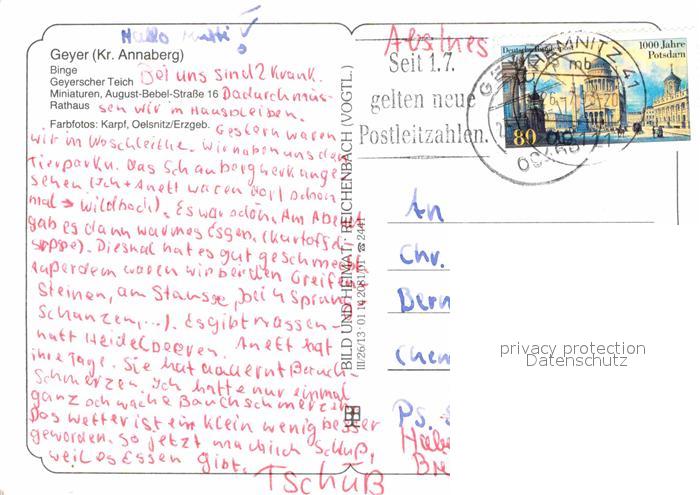 Hallo Mutti!
Geyer (Kr. Annaberg)
Binge
Geyerscher Teich
Miniaturen, August-Bebel-Straße 16
Rathaus
Farbfotos: Karpf, Oelsnitz/Erzgeb.
Bei uns sind 2 krank.
Dadurch müs-
sen wir im Haus bleiben.
Gestern waren
wir in Waschleithe. Wir haben uns den
Tierpark u. das Schaubergwerk ange-
sehen (Ich + Anett waren dort schon
mal → Wildbach). Es war schön. Am Abend
gab es dann warmes Essen. (Kartoffel-
suppe). Diesmal hat es gut geschmeckt
außerdem waren wir bei den Greifen-
Steinen, am Stausee, bei 4 Sprung-
Schanzen, ...). Es gibt massen-
haft Heidelbeeren. Anett hat
ihre Tage. Sie hat dauernt Bauch-
Schmerzen. Ich hatte nur einmal
ganz schwache Bauchschmerzen
Das Wetter ist ein klein wenig besser
geworden. So jetzt mach ich Schluß,
weil es Essen gibt.
Tschüß
BILD UND HEIMAT, REICHENBACH (VOGTL.)
Seit 1.7.
gelten neue
Postleitzahlen.
Deutsche Bundespost
1000 Jahre
Potsdam
80
CHEMNITZ 41
mb
An
Chr.
Bern
Chem
Ps.
privacy protection
Datenschutz